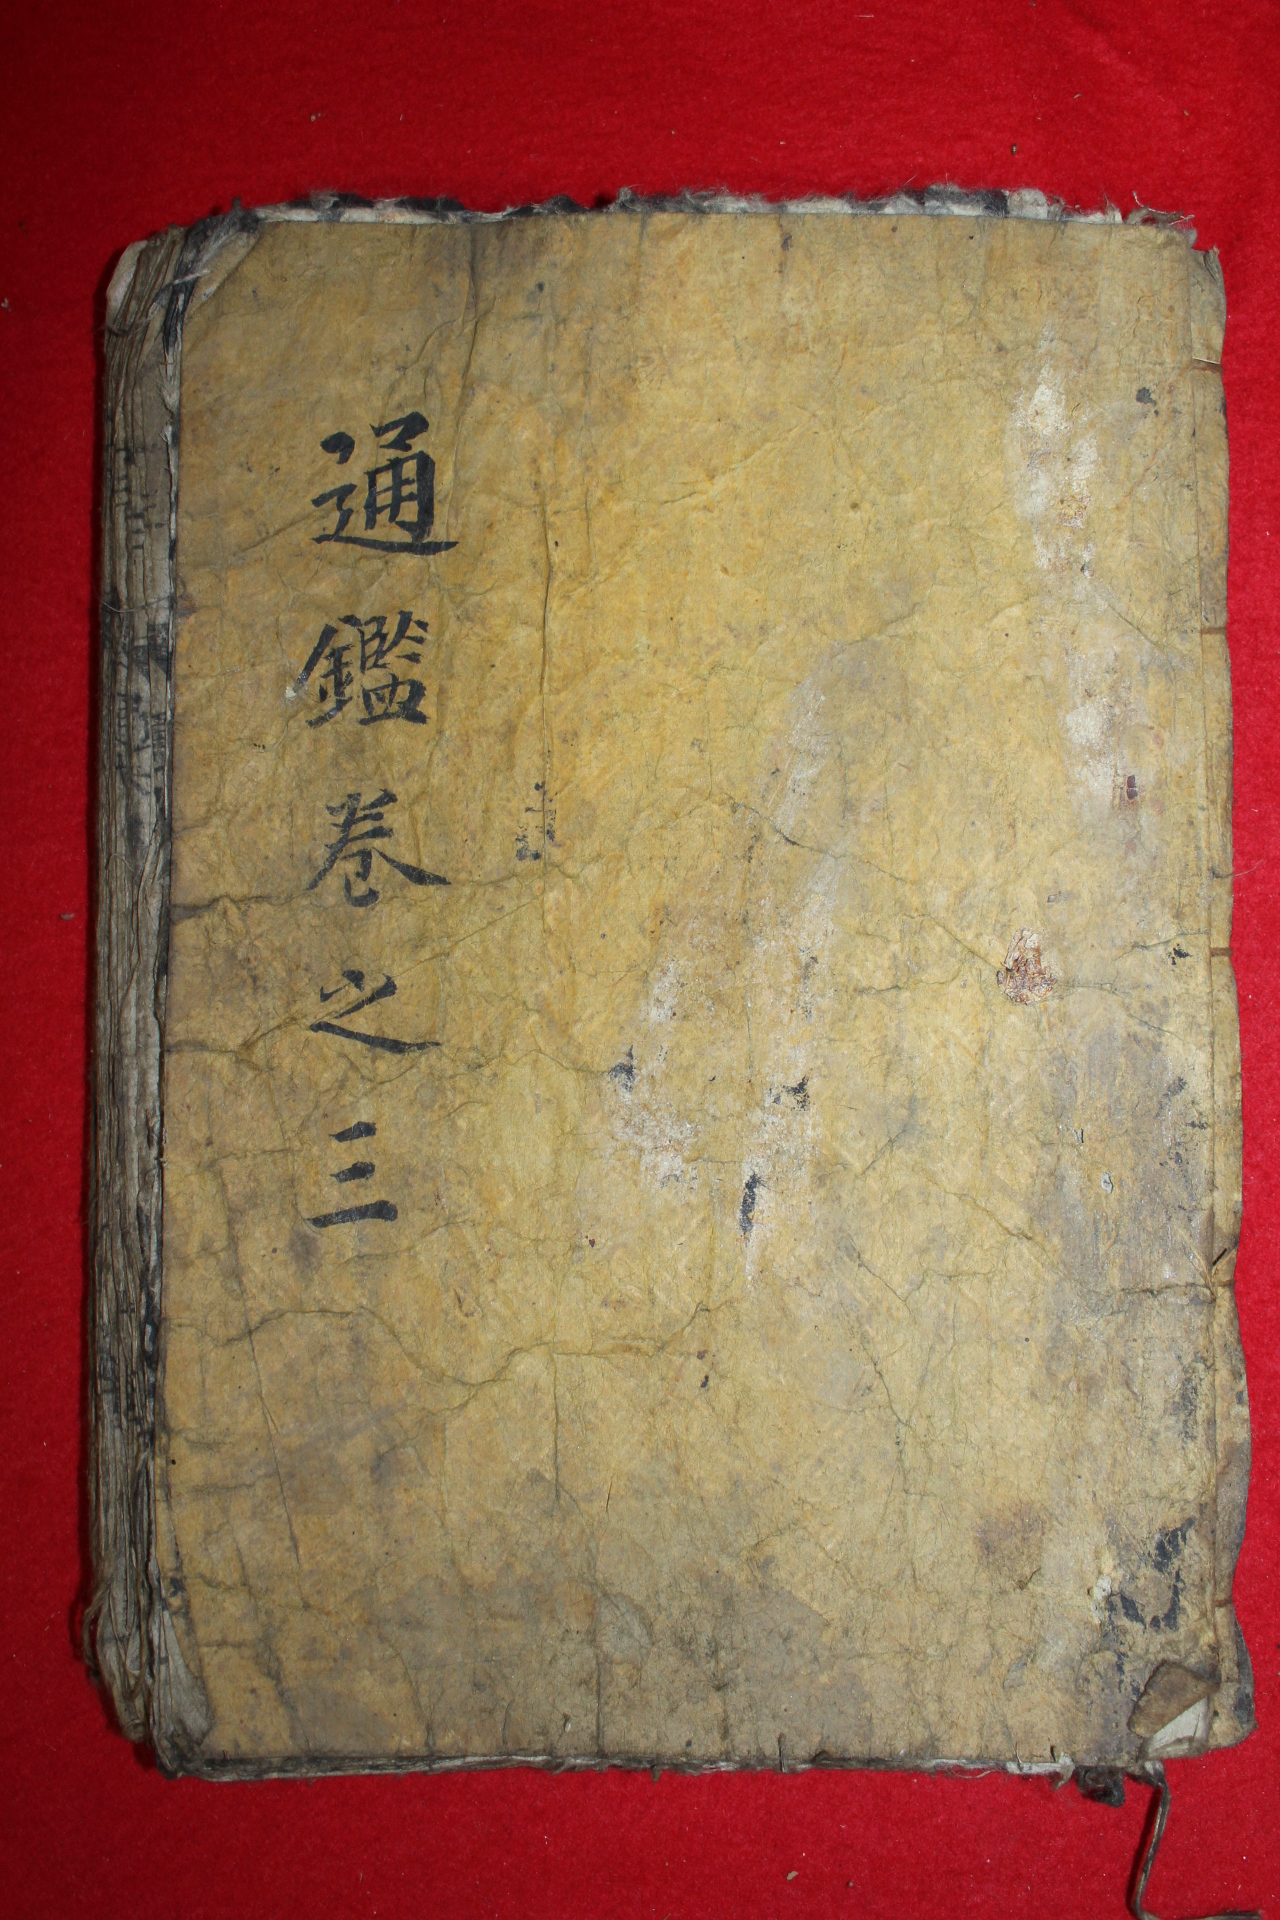 通鑑卷之三